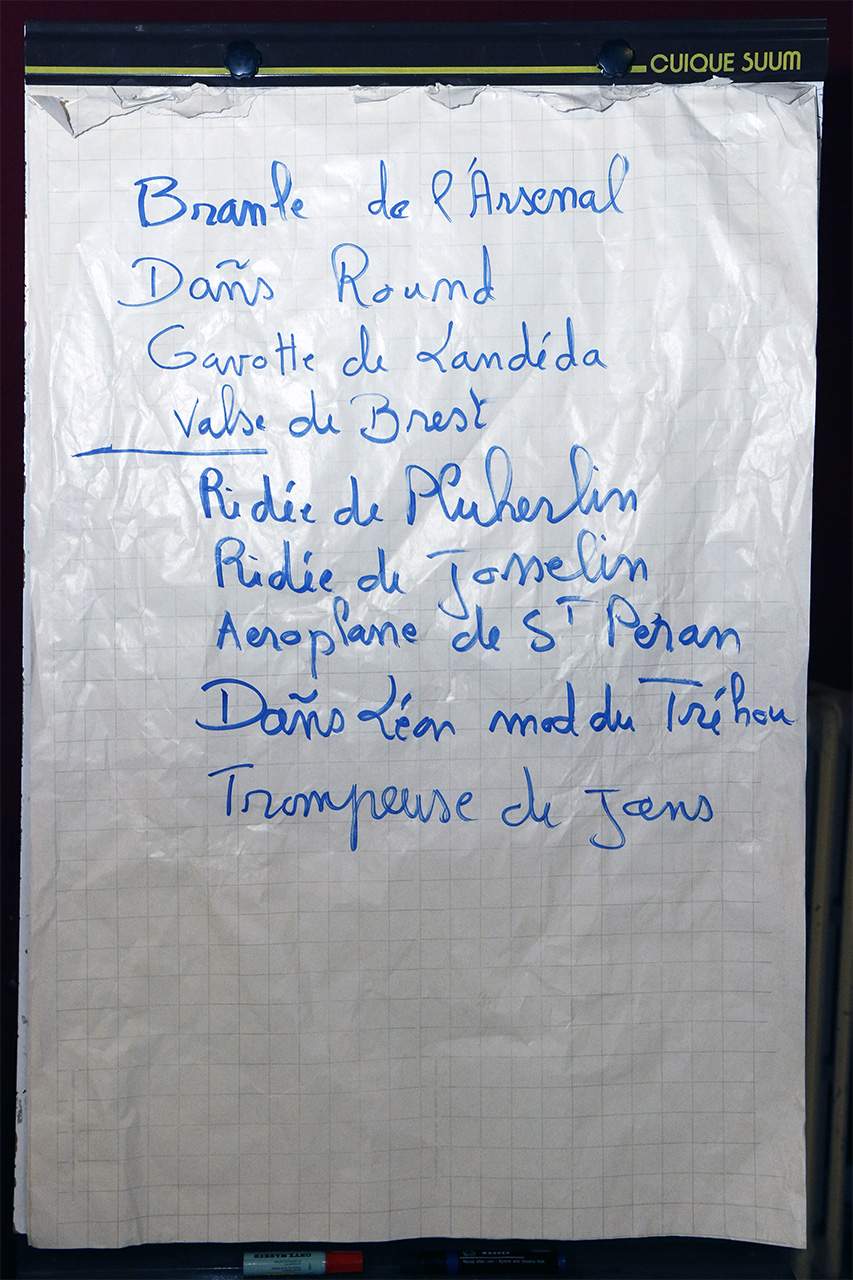 CUIQUE SUUM
Branle de l'Arsenal
Dañs Round
Gavotte de Landéda
Valse de Brest
Ridée de Pluherlin
Ridée de Josselin
Aeroplane de ST Peran
Dañs Léon mod du Tréhou
Trompeuse de Jans